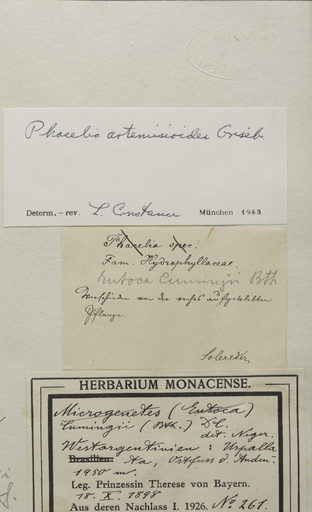 Phacelia artemisioides Griseb
Determ. – rev. L. Constance München 1963
Phacelia spec.
Fam. Hydrophyllaceae.
Eutoca Cumingii Bth
Verschieden von der rechts aufgeklebten
Pflanze.
Solereder
HERBARIUM MONACENSE.
Microgenetes (Eutoca)
Cumingii (Bth.) DC.
det. Neger.
Westargentinien: Uspalla
Brasilien. ta, Ostfuss d. Anden.
1950 m.
Leg. Prinzessin Therese von Bayern.
18. X. 1898
Aus deren Nachlass I. 1926. No 261.